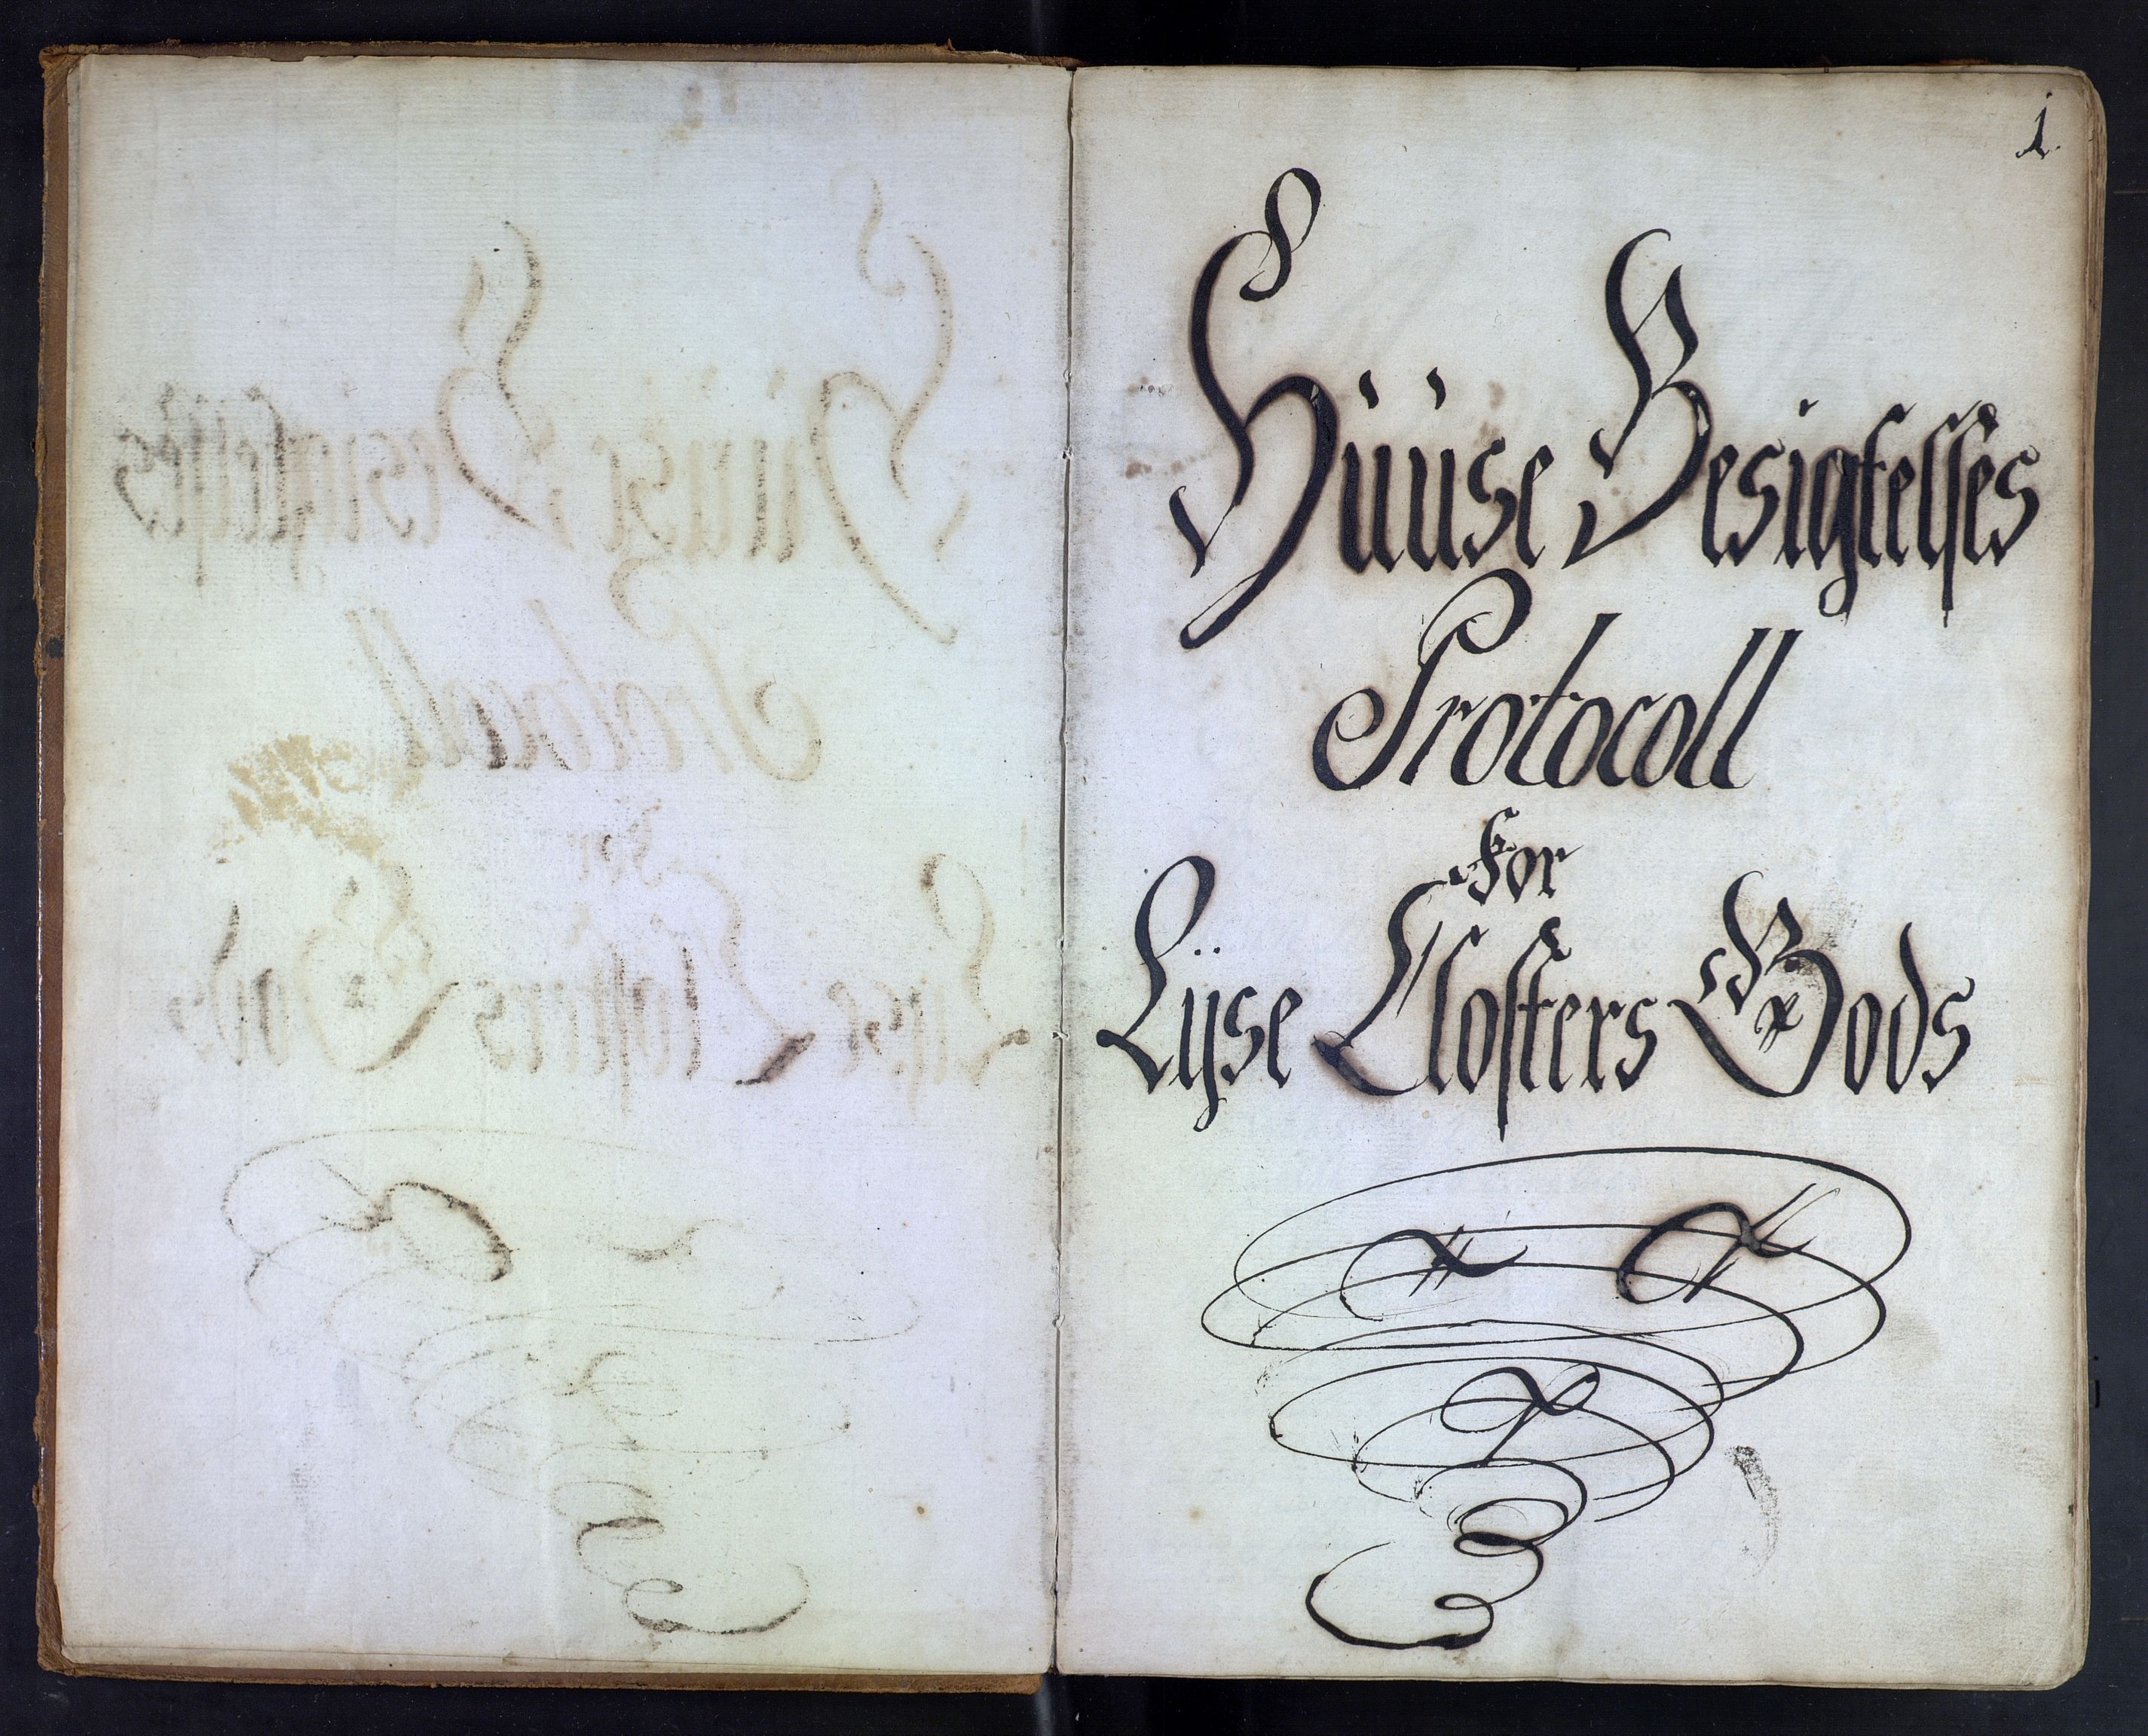 1.
Huuse Besigtelses
Protocoll
For
Lÿse Closters Gods